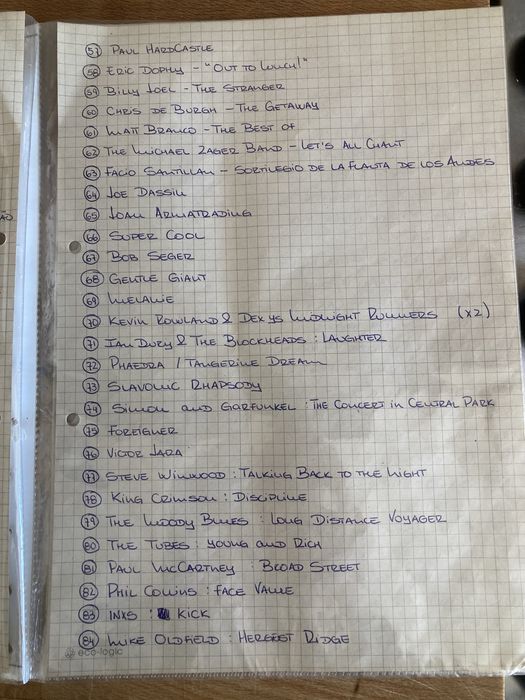 57 PAUL HARDCASTLE
58 ERIC DOPHY - "OUT TO LUNCH!"
59 BILLY JOEL - THE STRANGER
60 CHRIS DE BURGH - THE GETAWAY
61 MATT BIANCO - THE BEST OF
62 THE MICHAEL ZAGER BAND - LET'S ALL CHANT
63 FACIO SANTILLAN - SORTILEGIO DE LA FLAUTA DE LOS ANDES
64 JOE DASSIN
65 JOAN ARMATRADING
66 SUPER COOL
67 BOB SEGER
68 GENTLE GIANT
69 MELANIE
70 KEVIN ROWLAND & DEXYS MIDNIGHT RUNNERS (x2)
71 IAN DURY & THE BLOCKHEADS : LAUGHTER
72 PHAEDRA / TANGERINE DREAM
73 SLAVONIC RHAPSODY
74 SIMON AND GARFUNKEL : THE CONCERT IN CENTRAL PARK
75 FOREIGNER
76 VICTOR JARA
77 STEVE WINWOOD : TALKING BACK TO THE NIGHT
78 KING CRIMSON : DISCIPLINE
79 THE MOODY BLUES : LONG DISTANCE VOYAGER
80 THE TUBES : YOUNG AND RICH
81 PAUL McCARTNEY : BROAD STREET
82 PHIL COLLINS : FACE VALUE
83 INXS : KICK
84 MIKE OLDFIELD : HERGEST RIDGE
eco-logic